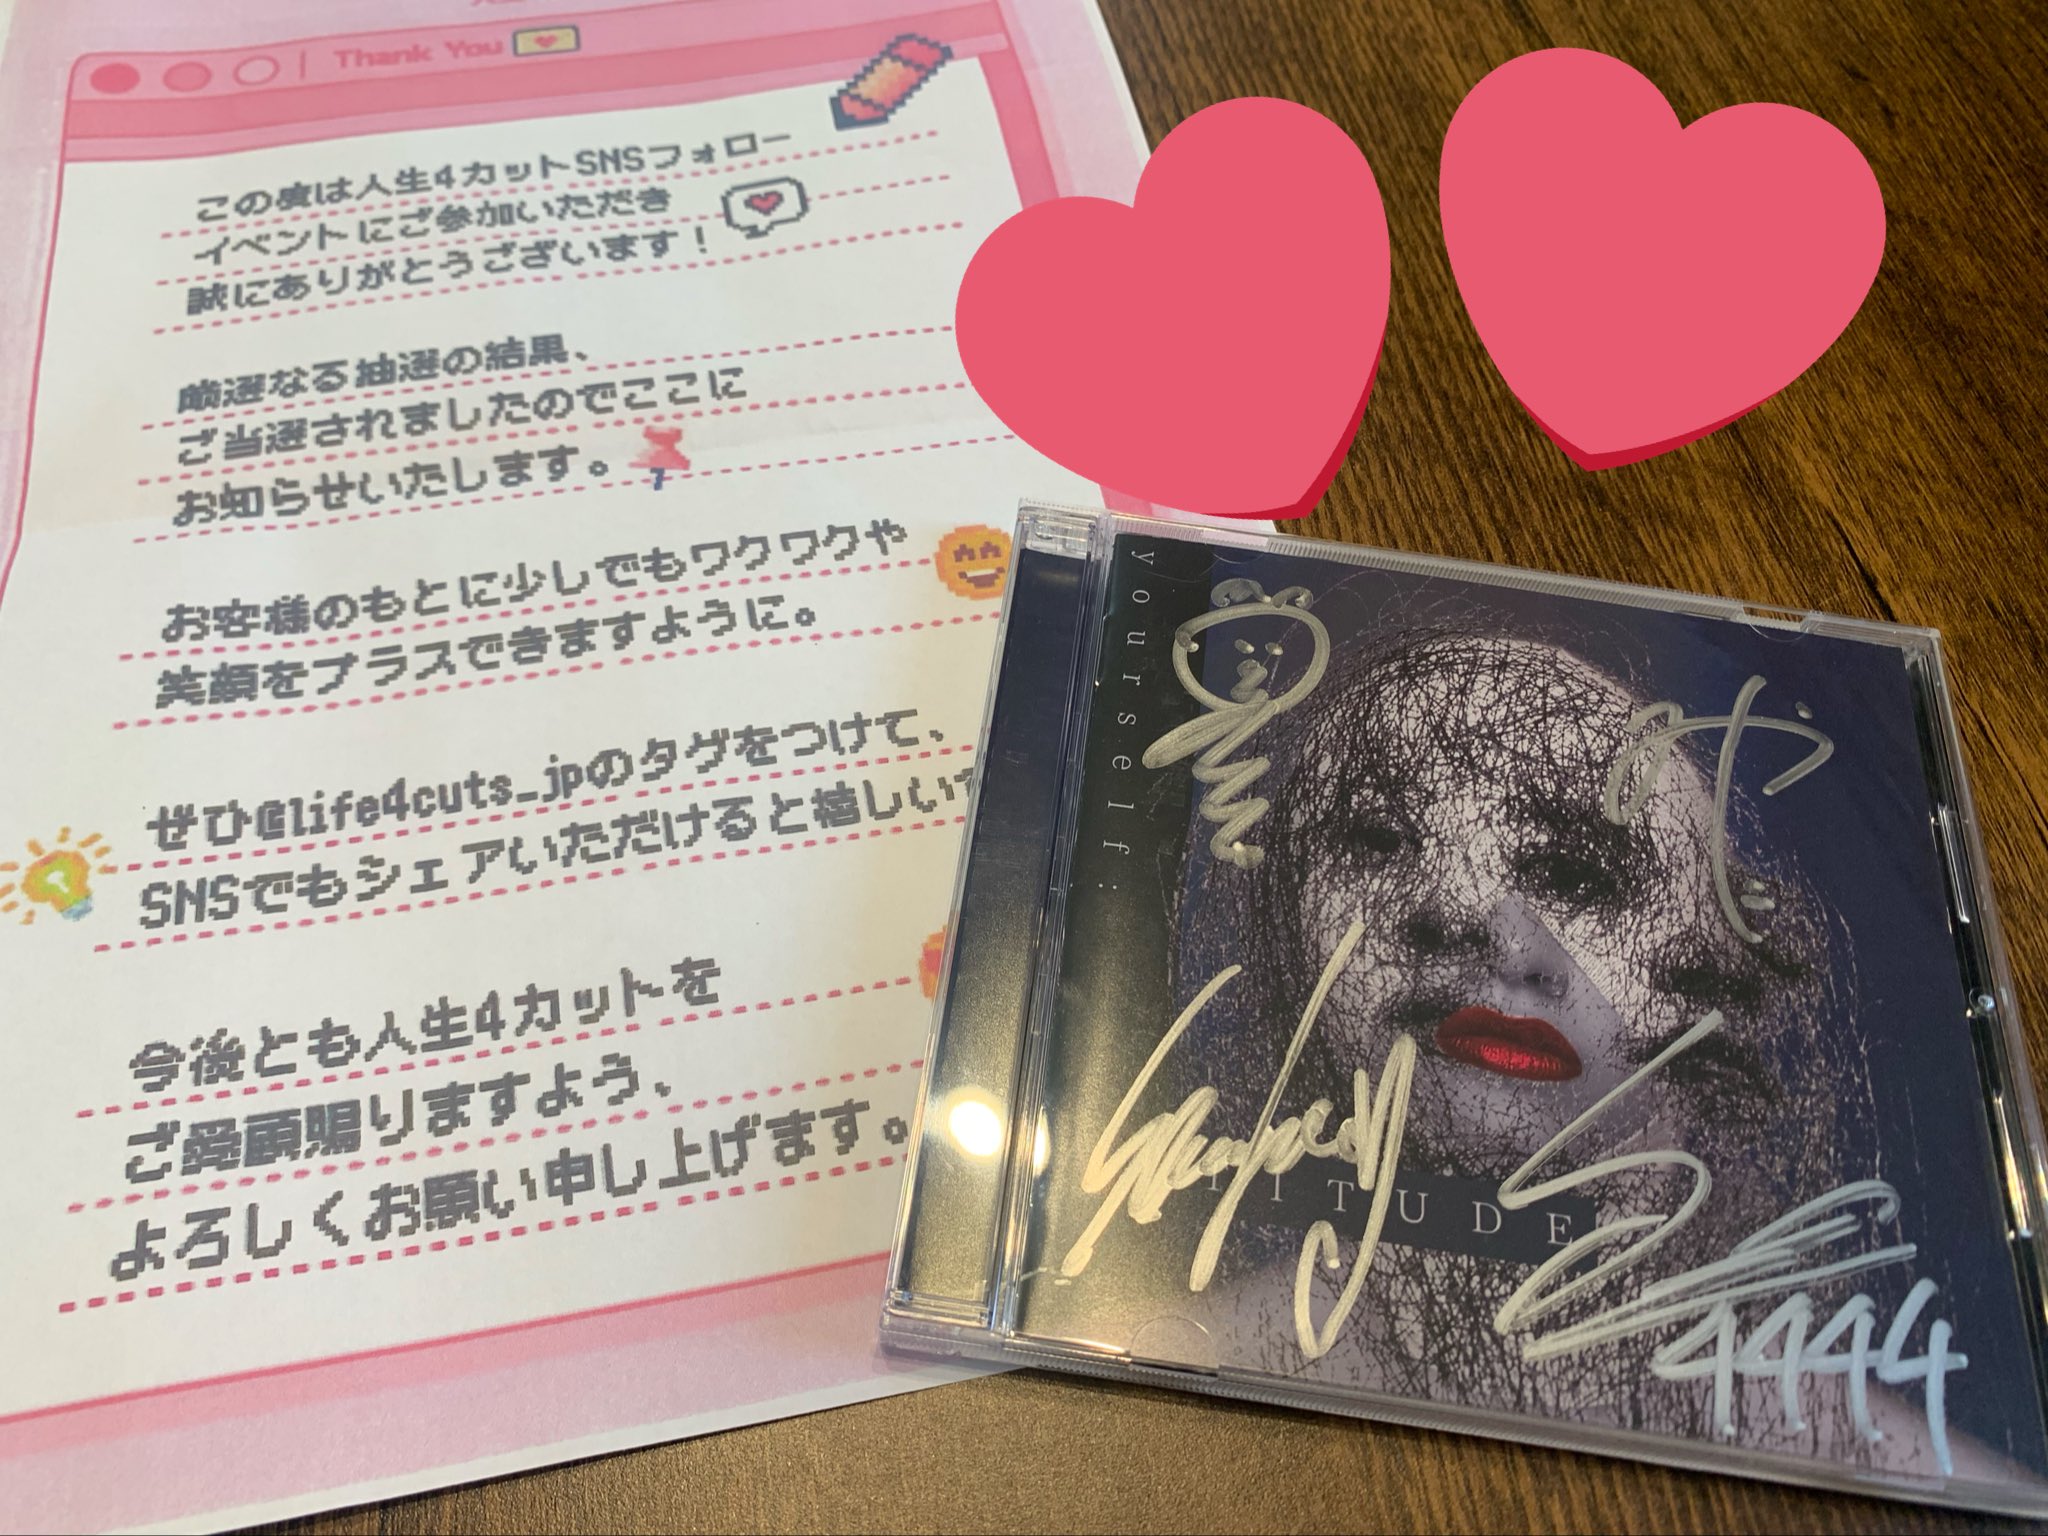 Thank You
この度は人生4カットSNSフォロー
イベントにご参加いただき
誠にありがとうございます！
厳選なる抽選の結果、
ご当選されましたのでここに
お知らせいたします。
お客様のもとに少しでもワクワクや
笑顔をプラスできますように。
ぜひ@life4cuts_jpのタグをつけて、
SNSでもシェアいただけると嬉しいで
今後とも人生4カットを
ご愛顧賜りますよう、
よろしくお願い申し上げます。
yourself:
ITUDE
4444